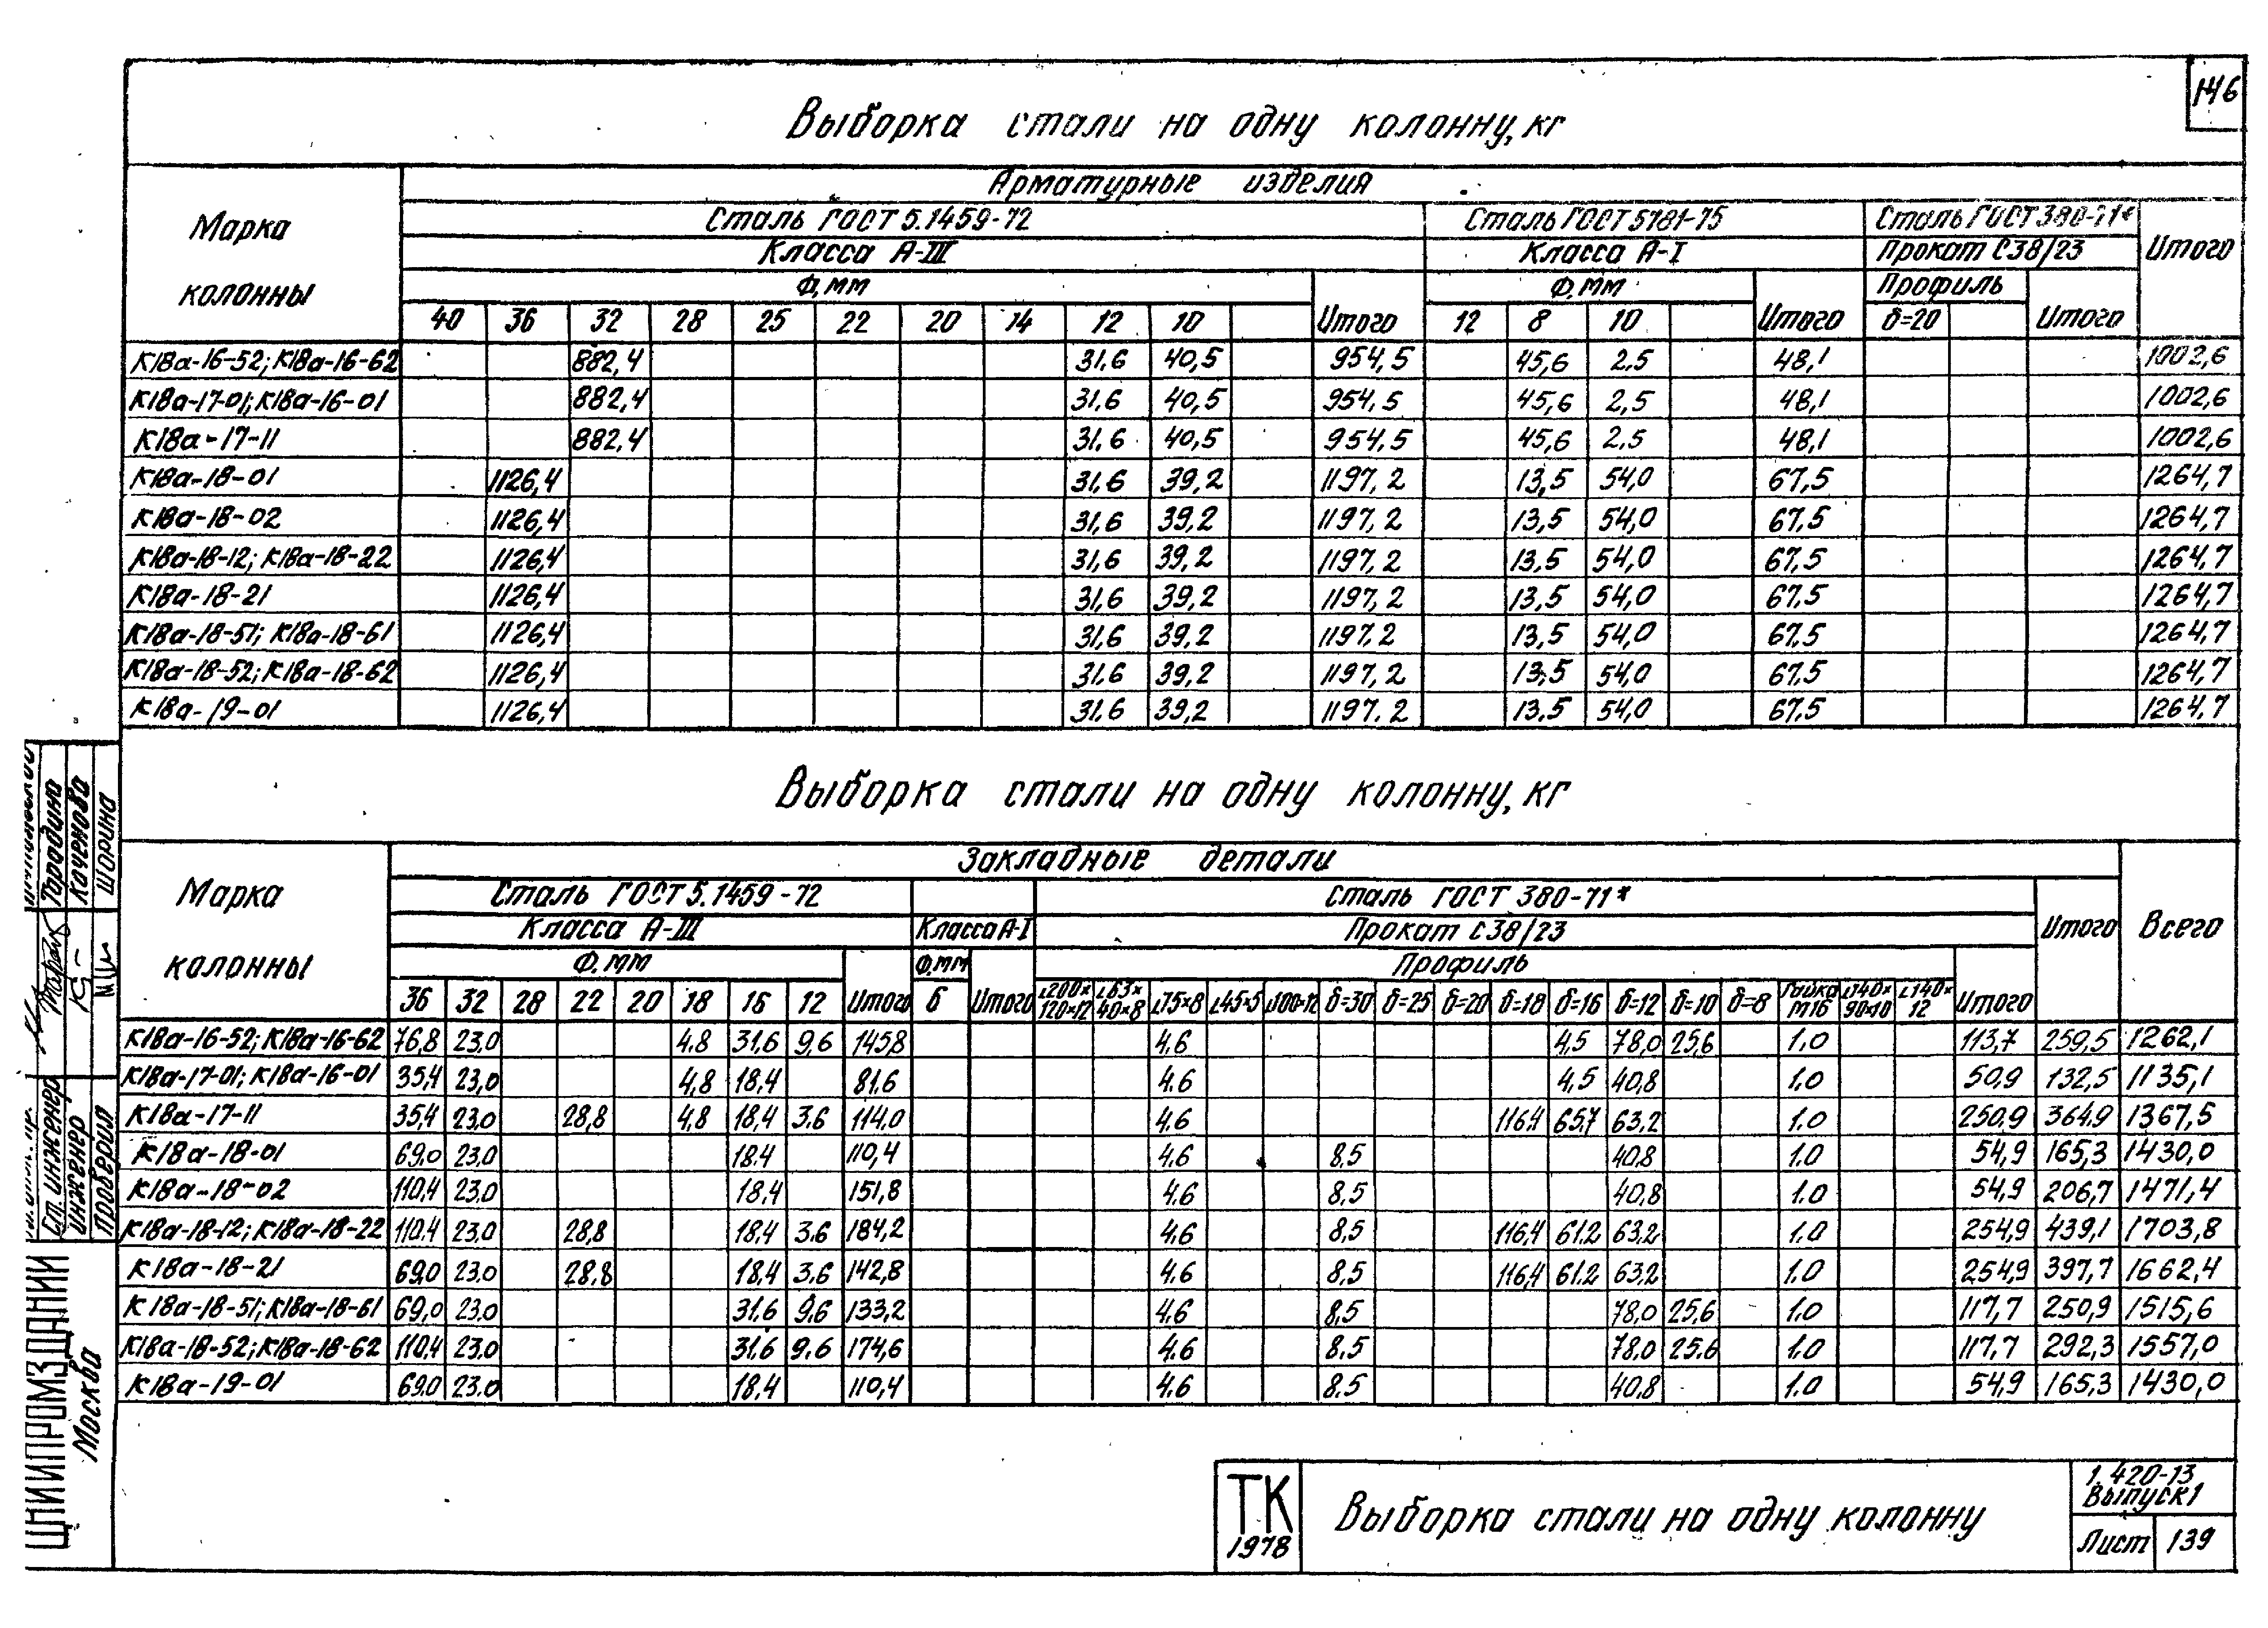 146
Выборка стали на одну колонну, кг
Марка колонны
Арматурные изделия
Сталь ГОСТ 5.1459-72 Сталь ГОСТ 5781-75 Сталь ГОСТ 380-71* Итого
Класса А-III Класса А-I Прокат С38/23
Ф, мм Итого Ф, мм Итого Профиль Итого
40 36 32 28 25 22 20 14 12 10 12 8 10 δ=20
К18а-16-52; К18а-16-62 882,4 31,6 40,5 954,5 45,6 2.5 48,1 1002,6
К18а-17-01; К18а-16-01 882,4 31,6 40,5 954,5 45,6 2,5 48,1 1002,6
К18а-17-11 882,4 31.6 40,5 954,5 45,6 2.5 48,1 1002,6
К18а-18-01 1126,4 31,6 39,2 1197,2 13,5 54,0 67,5 1264,7
К18а-18-02 1126,4 31,6 39,2 1197,2 13,5 54,0 67,5 1264,7
К18а-18-12; К18а-18-22 1126,4 31,6 39,2 1197,2 13,5 54,0 67,5 1264,7
К18а-18-21 1126,4 31,6 39,2 1197,2 13,5 54,0 67,5 1264,7
К18а-18-51; К18а-18-61 1126,4 31,6 39,2 1197,2 13,5 54,0 67,5 1264,7
К18а-18-52; К18а-18-62 1126,4 31,6 39,2 1197,2 13,5 54,0 67,5 1264,7
К18а-19-01 1126,4 31,6 39,2 1197,2 13,5 54,0 67,5 1264,7
Выборка стали на одну колонну, кг
Марка колонны
Закладные детали Всего
Сталь ГОСТ 5.1459-72 Сталь ГОСТ 380-71* Итого
Класса А-III Класса А-I Прокат С38/23
Ф, мм Итого Ф, мм Итого Профиль Итого
36 32 28 22 20 18 16 12 6 ∟200×120×12 ∟63×40×8 ∟75×8 ∟45×5 ∟100×12 δ=30 δ=25 δ=20 δ=18 δ=16 δ=12 δ=10 δ=8 Гайка М16 ∟140×90×10 ∟140×12
К18а-16-52; К18а-16-62 76,8 23,0 4.8 31,6 9,6 145,8 4.6 4,5 78,0 25,6 1.0 113,7 259,5 1262,1
К18а-17-01; К18а-16-01 35,4 23,0 4,8 18,4 81,6 4.6 4,5 40,8 1,0 50,9 132,5 1135,1
К18а-17-11 35,4 23,0 28,8 4,8 18,4 3,6 114,0 4.6 116,4 65,7 63,2 1.0 250,9 364,9 1367,5
К18а-18-01 69,0 23,0 18,4 110,4 4.6 8,5 40,8 1.0 54,9 165,3 1430,0
К18а-18-02 110,4 23,0 18,4 151,8 4.6 8.5 40,8 1.0 54,9 206,7 1471,4
К18а-18-12; К18а-18-22 110,4 23,0 28,8 18,4 3,6 184,2 4.6 8,5 116,4 61,2 63,2 1.0 254,9 439,1 1703,8
К18а-18-21 69,0 23,0 28,8 18,4 3,6 142,8 4.6 8,5 116,4 61,2 63,2 1.0 254,9 397,7 1662,4
К18а-18-51; К18а-18-61 69,0 23,0 31,6 9,6 133,2 4.6 8,5 78,0 25,6 1.0 117,7 250,9 1515,6
К18а-18-52; К18а-18-62 110,4 23,0 31,6 9.6 174,6 4.6 8.5 78,0 25,6 1.0 117,7 292,3 1557,0
К18а-19-01 69,0 23,0 18,4 110,4 4.6 8.5 40,8 1.0 54,9 165,3 1430,0
Тарадина
Коченова
Шорина
Ст. инженер
инженер
проверил
ЦНИИПРОМЗДАНИЙ
Москва
ТК
1978
Выборка стали на одну колонну
1.420-13
Выпуск 1
Лист 139